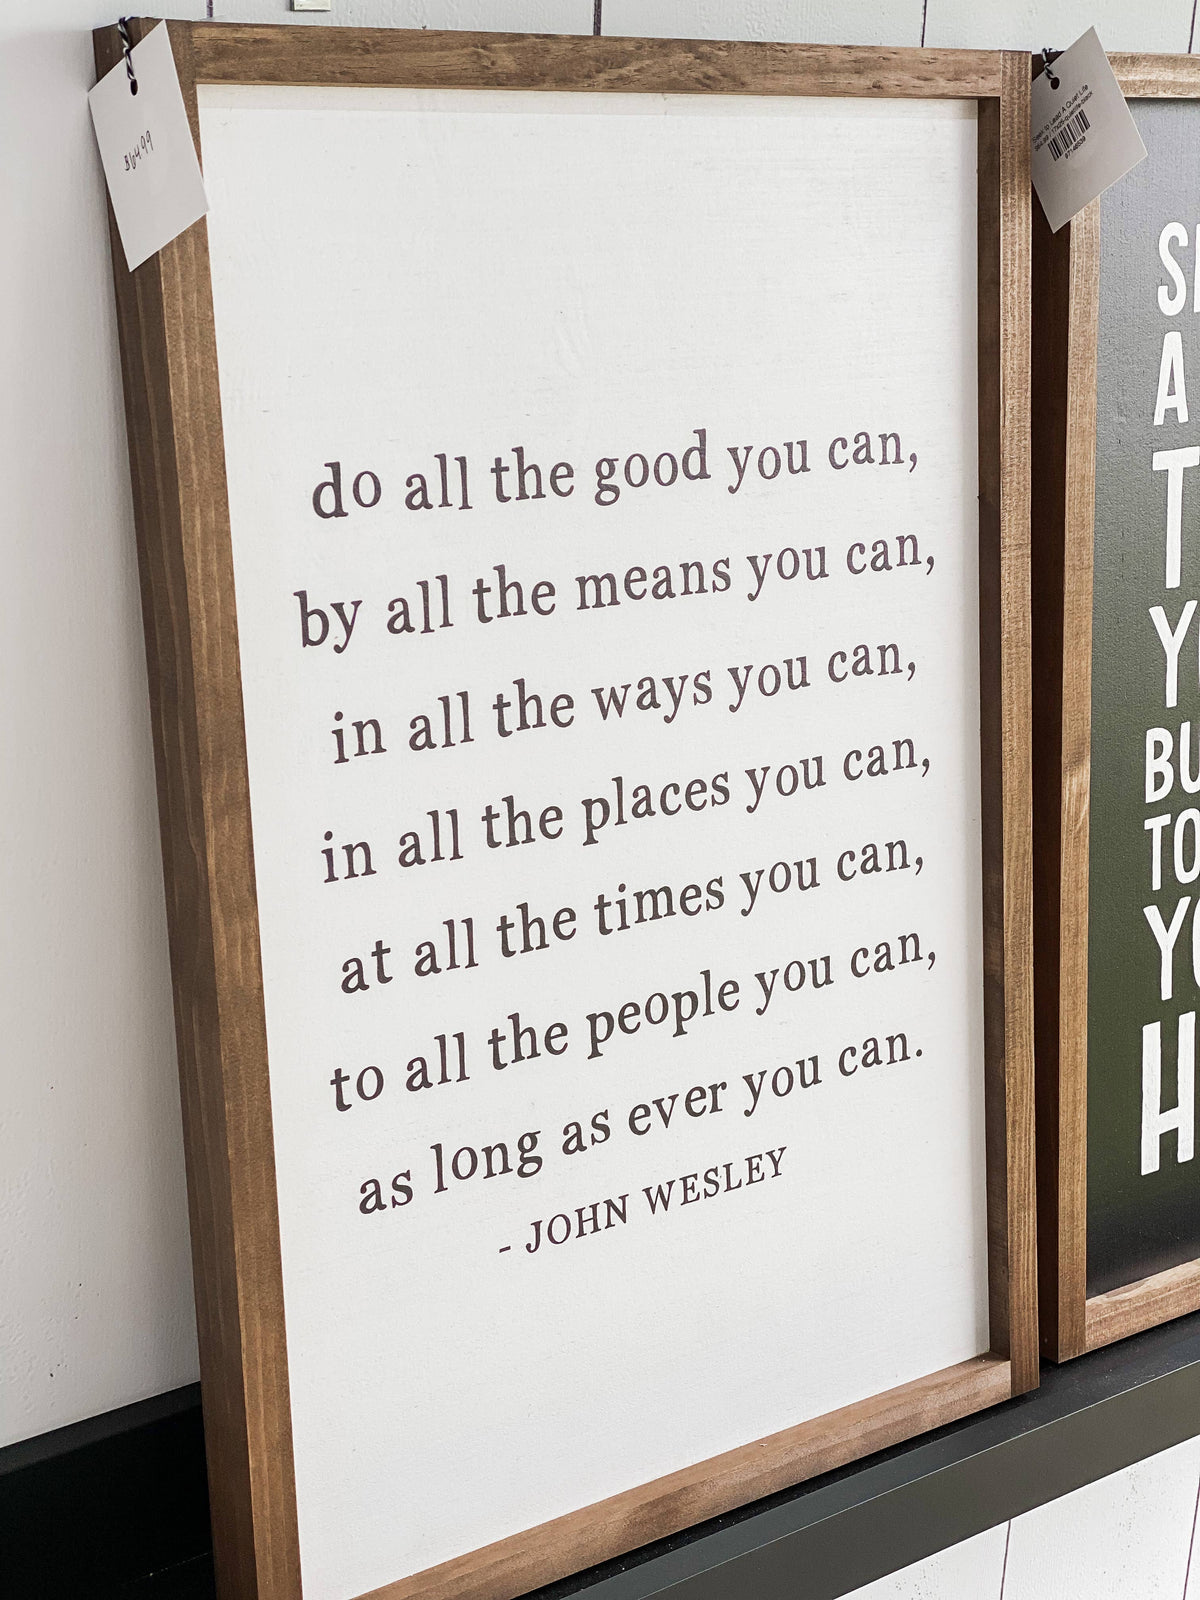 $64.99
do all the good you can,
by all the means you can,
in all the ways you can,
in all the places you can,
at all the times you can,
to all the people you can,
as long as ever you can.
- JOHN WESLEY
to Lead A Quiet Life
A
BU
TO
H